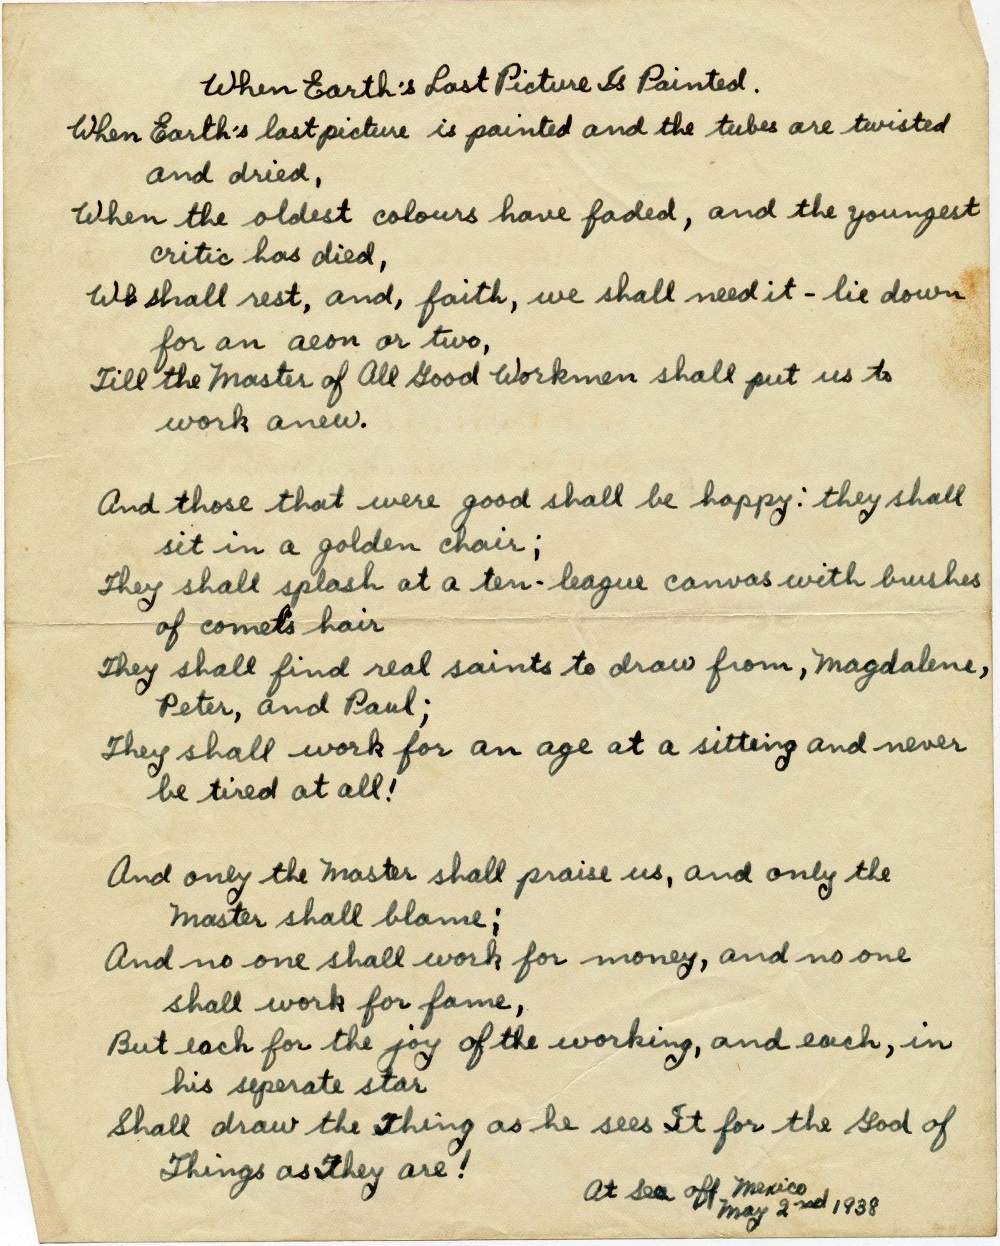 When Earth's Last Picture Is Painted.
When Earth's last picture is painted and the tubes are twisted
and dried,
When the oldest colours have faded, and the youngest
critic has died,
We shall rest, and, faith, we shall need it - lie down
for an aeon or two,
Till the Master of All Good Workmen shall put us to
work anew.
And those that were good shall be happy: they shall
sit in a golden chair;
They shall splash at a ten-league canvas with brushes
of comet's hair
They shall find real saints to draw from, Magdalene,
Peter, and Paul;
They shall work for an age at a sitting and never
be tired at all!
And only the Master shall praise us, and only the
Master shall blame;
And no one shall work for money, and no one
shall work for fame,
But each for the joy of the working, and each, in
his seperate star
Shall draw the Thing as he sees It for the God of
Things as They are!
At sea off Mexico
May 2nd 1938